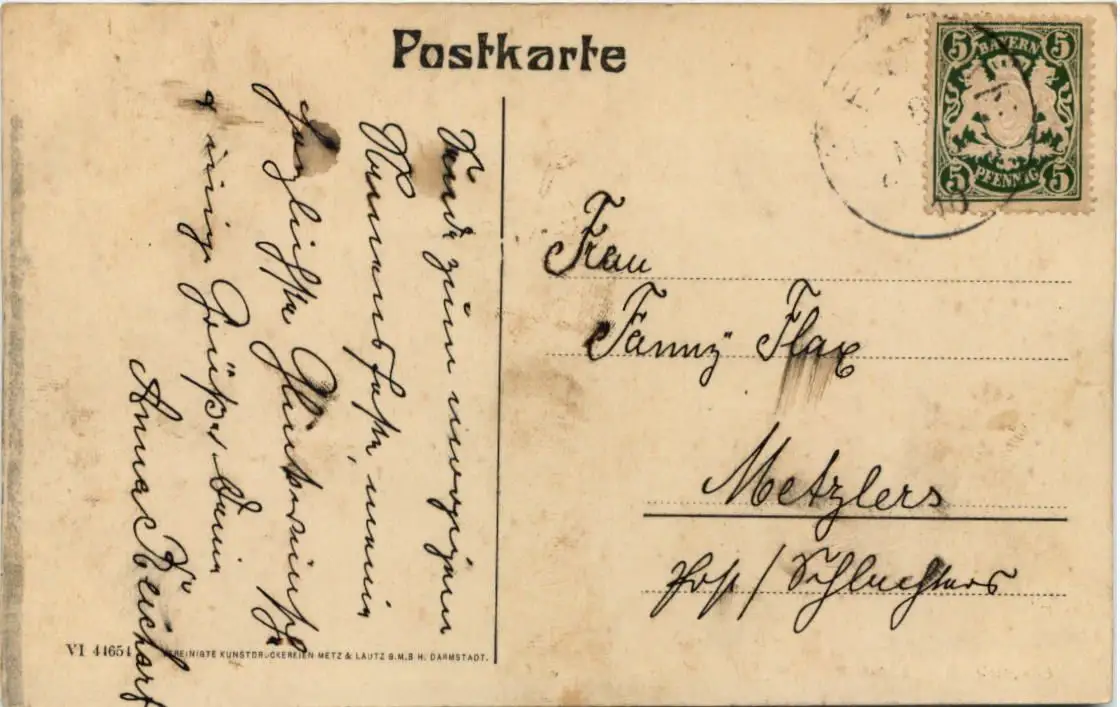 Postkarte
5 BAYERN 5
5 PFENNIG 5
Frau
Fanny Flax
Metzlers
Post / Schlachters
zum morgigen
Namensfeste, meine
herzlichste Glückwünsche
innige Grüße Deine
Anna
VI 44654
VEREINIGTE KUNSTDRUCKEREIEN METZ & LAUTZ G.M.B H. DARMSTADT.